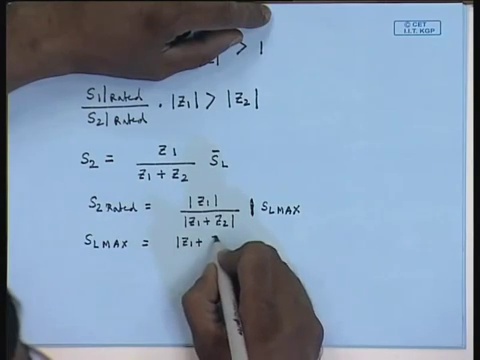 © CET
I.I.T. KGP
> 1
S1|Rated / S2|Rated . |Z1| > |Z2|
S2 = Z1 / (Z1 + Z2) S̄L
S2 Rated = |Z1| / |Z1 + Z2| | SLMAX
SLMAX = |Z1 +